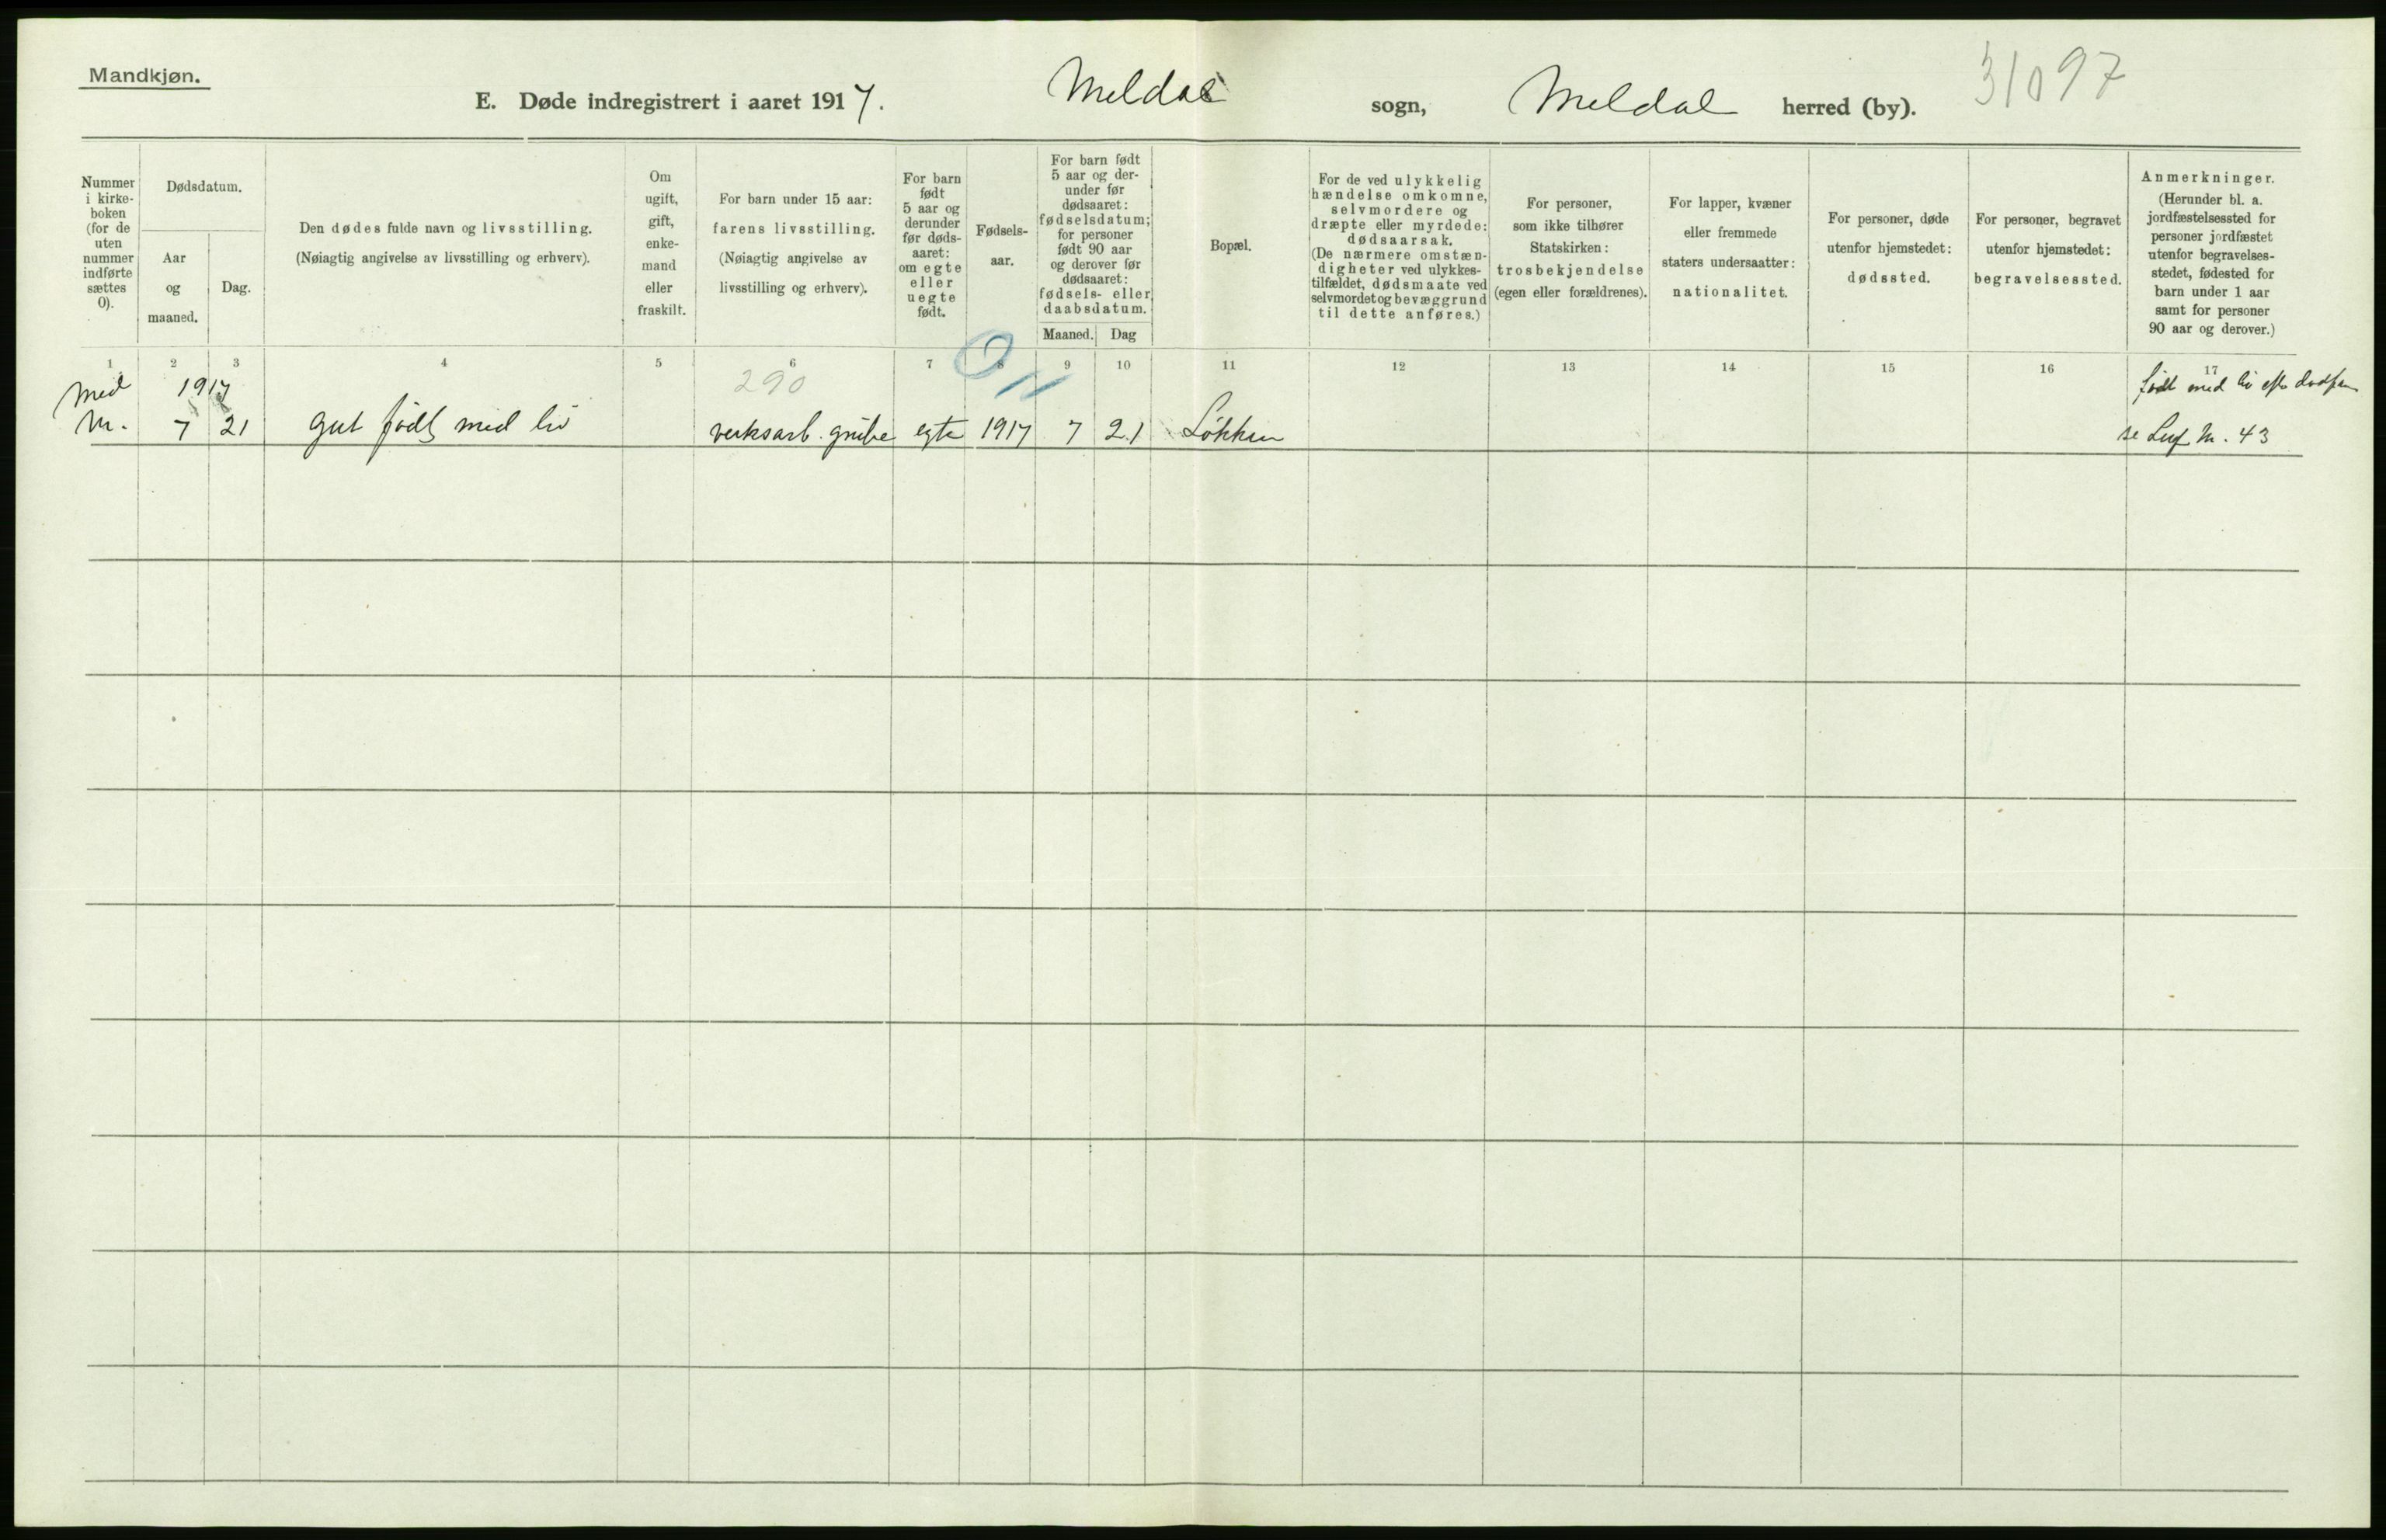 Mandkjøn.
E. Døde indregistrert i aaret 1917. Meldal sogn, Meldal herred (by). 31097
Nummer i kirkeboken (for de uten nummer indførte sættes 0).
Dødsdatum.
Aar og maaned.
Dag.
Den dødes fulde navn og livsstilling.
(Nøiagtig angivelse av livsstilling og erhverv).
Om ugift, gift, enkemand eller fraskilt.
For barn under 15 aar:
farens livsstilling.
(Nøiagtig angivelse av livsstilling og erhverv).
For barn født 5 aar og derunder før dødsaaret: om egte eller uegte født.
Fødselsaar.
For barn født 5 aar og derunder før dødsaaret: fødselsdatum; for personer født 90 aar og derover før dødsaaret: fødsels- eller daabsdatum.
Maaned. Dag
Bopæl.
For de ved ulykkelig hændelse omkomne, selvmordere og dræpte eller myrdede: dødsaarsak.
(De nærmere omstændigheter ved ulykkestilfældet, dødsmaate ved selvmordet og bevæggrund til dette anføres.)
For personer, som ikke tilhører Statskirken: trosbekjendelse (egen eller forældrenes).
For lapper, kvæner eller fremmede staters undersaatter: nationalitet.
For personer, døde utenfor hjemstedet: dødssted.
For personer, begravet utenfor hjemstedet: begravelsessted.
Anmerkninger.
(Herunder bl. a. jordfæstelsessted for personer jordfæstet utenfor begravelsesstedet, fødested for barn under 1 aar samt for personer 90 aar og derover.)
1 2 3 4 5 6 7 8 9 10 11 12 13 14 15 16 17
Med 1917 290 født med liv
M. 7 21 gut født med liv verksarb. grube egte 1917 7 21 Løkken se M. 43